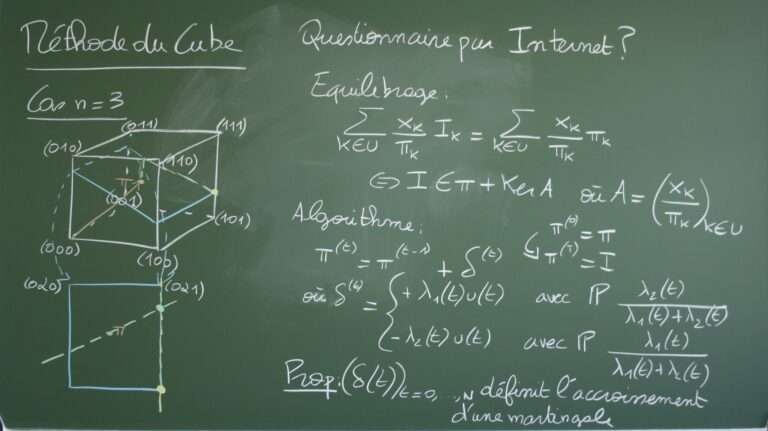 Méthode du Cube
Cas n=3
(011)
(111)
(010)
(110)
π
(001)
(101)
(000)
(100)
(020)
(021)
π
Questionnaire par Internet ?
Equilibrage :
∑_{k∈U} x_k/π_k I_k = ∑_{k∈U} x_k/π_k π_k
⇔ I ∈ π + Ker A où A = (x_k/π_k)_{k∈U}
Algorithme :
π^(t) = π^(t-1) + δ^(t)
π^(0) = π
π^(T) = I
où δ^(t) = { + λ₁(t) u(t) avec ℙ λ₂(t)/(λ₁(t)+λ₂(t))
- λ₂(t) u(t) avec ℙ λ₁(t)/(λ₁(t)+λ₂(t))
Prop : (δ(t))_{t=0, ..., N} définit l'accroissement
d'une martingale